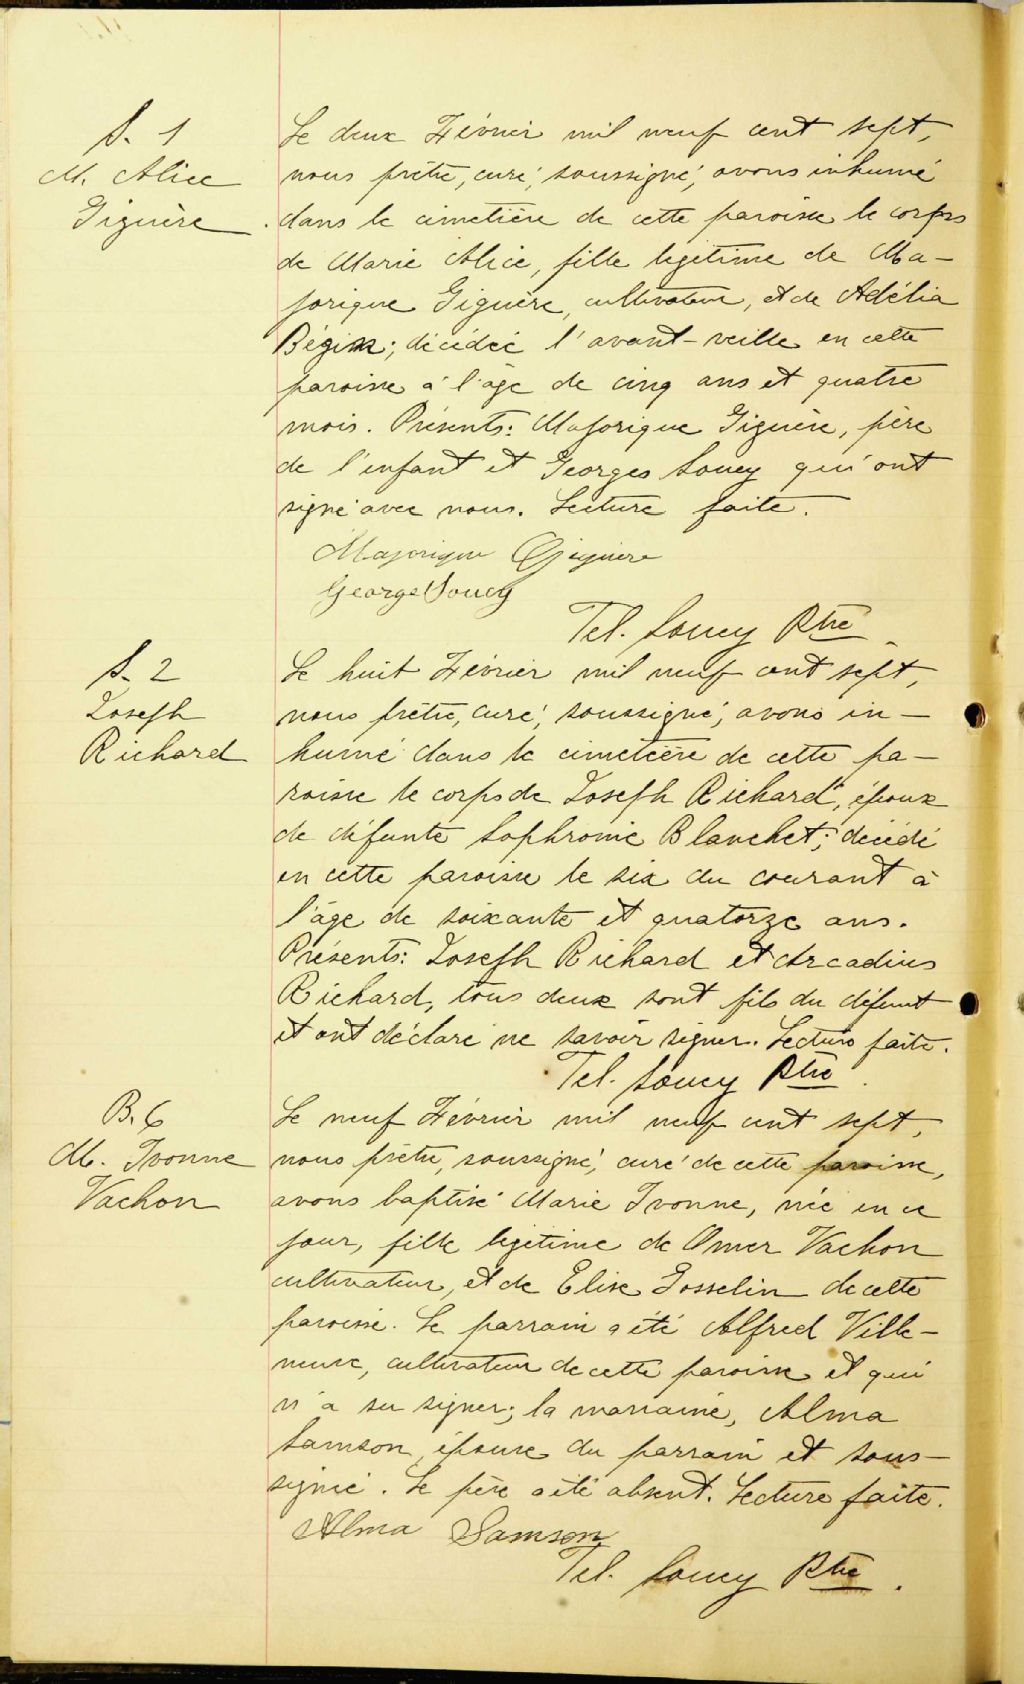 S. 1
M. Alice
Giguère
Le deux Février mil neuf cent sept,
nous prêtre, curé, soussigné, avons inhumé
dans le cimetière de cette paroisse le corps
de Marie Alice, fille légitime de Ma-
jorique Giguère, cultivateur, et de Adélia
Bégin; décédée l'avant-veille en cette
paroisse à l'âge de cinq ans et quatre
mois. Présents: Majorique Giguère, père
de l'enfant et Georges Soucy qui ont
signé avec nous. Lecture faite.
Majorique Giguere
George Soucy
Tel. Soucy Ptre
S. 2
Joseph
Richard
Le huit Février mil neuf cent sept,
nous prêtre, curé, soussigné, avons in-
humé dans le cimetière de cette pa-
roisse le corps de Joseph Richard, époux
de défunte Sophronie Blanchet; décédé
en cette paroisse le six du courant à
l'âge de soixante et quatorze ans.
Présents: Joseph Richard et Arcadius
Richard, tous deux sont fils du défunt
et ont déclaré ne savoir signer. Lecture faite.
Tel. Soucy Ptre
B. 6
M. Ivonne
Vachon
Le neuf Février mil neuf cent sept,
nous prêtre, soussigné, curé de cette paroisse,
avons baptisé Marie Ivonne, née en ce
jour, fille légitime de Omer Vachon
cultivateur, et de Elise Gosselin de cette
paroisse. Le parrain a été Alfred Ville-
neuve, cultivateur de cette paroisse et qui
n'a su signer; la marraine, Alma
Samson, épouse du parrain et sous-
signée. Le père a été absent. Lecture faite.
Alma Samson
Tel. Soucy Ptre.